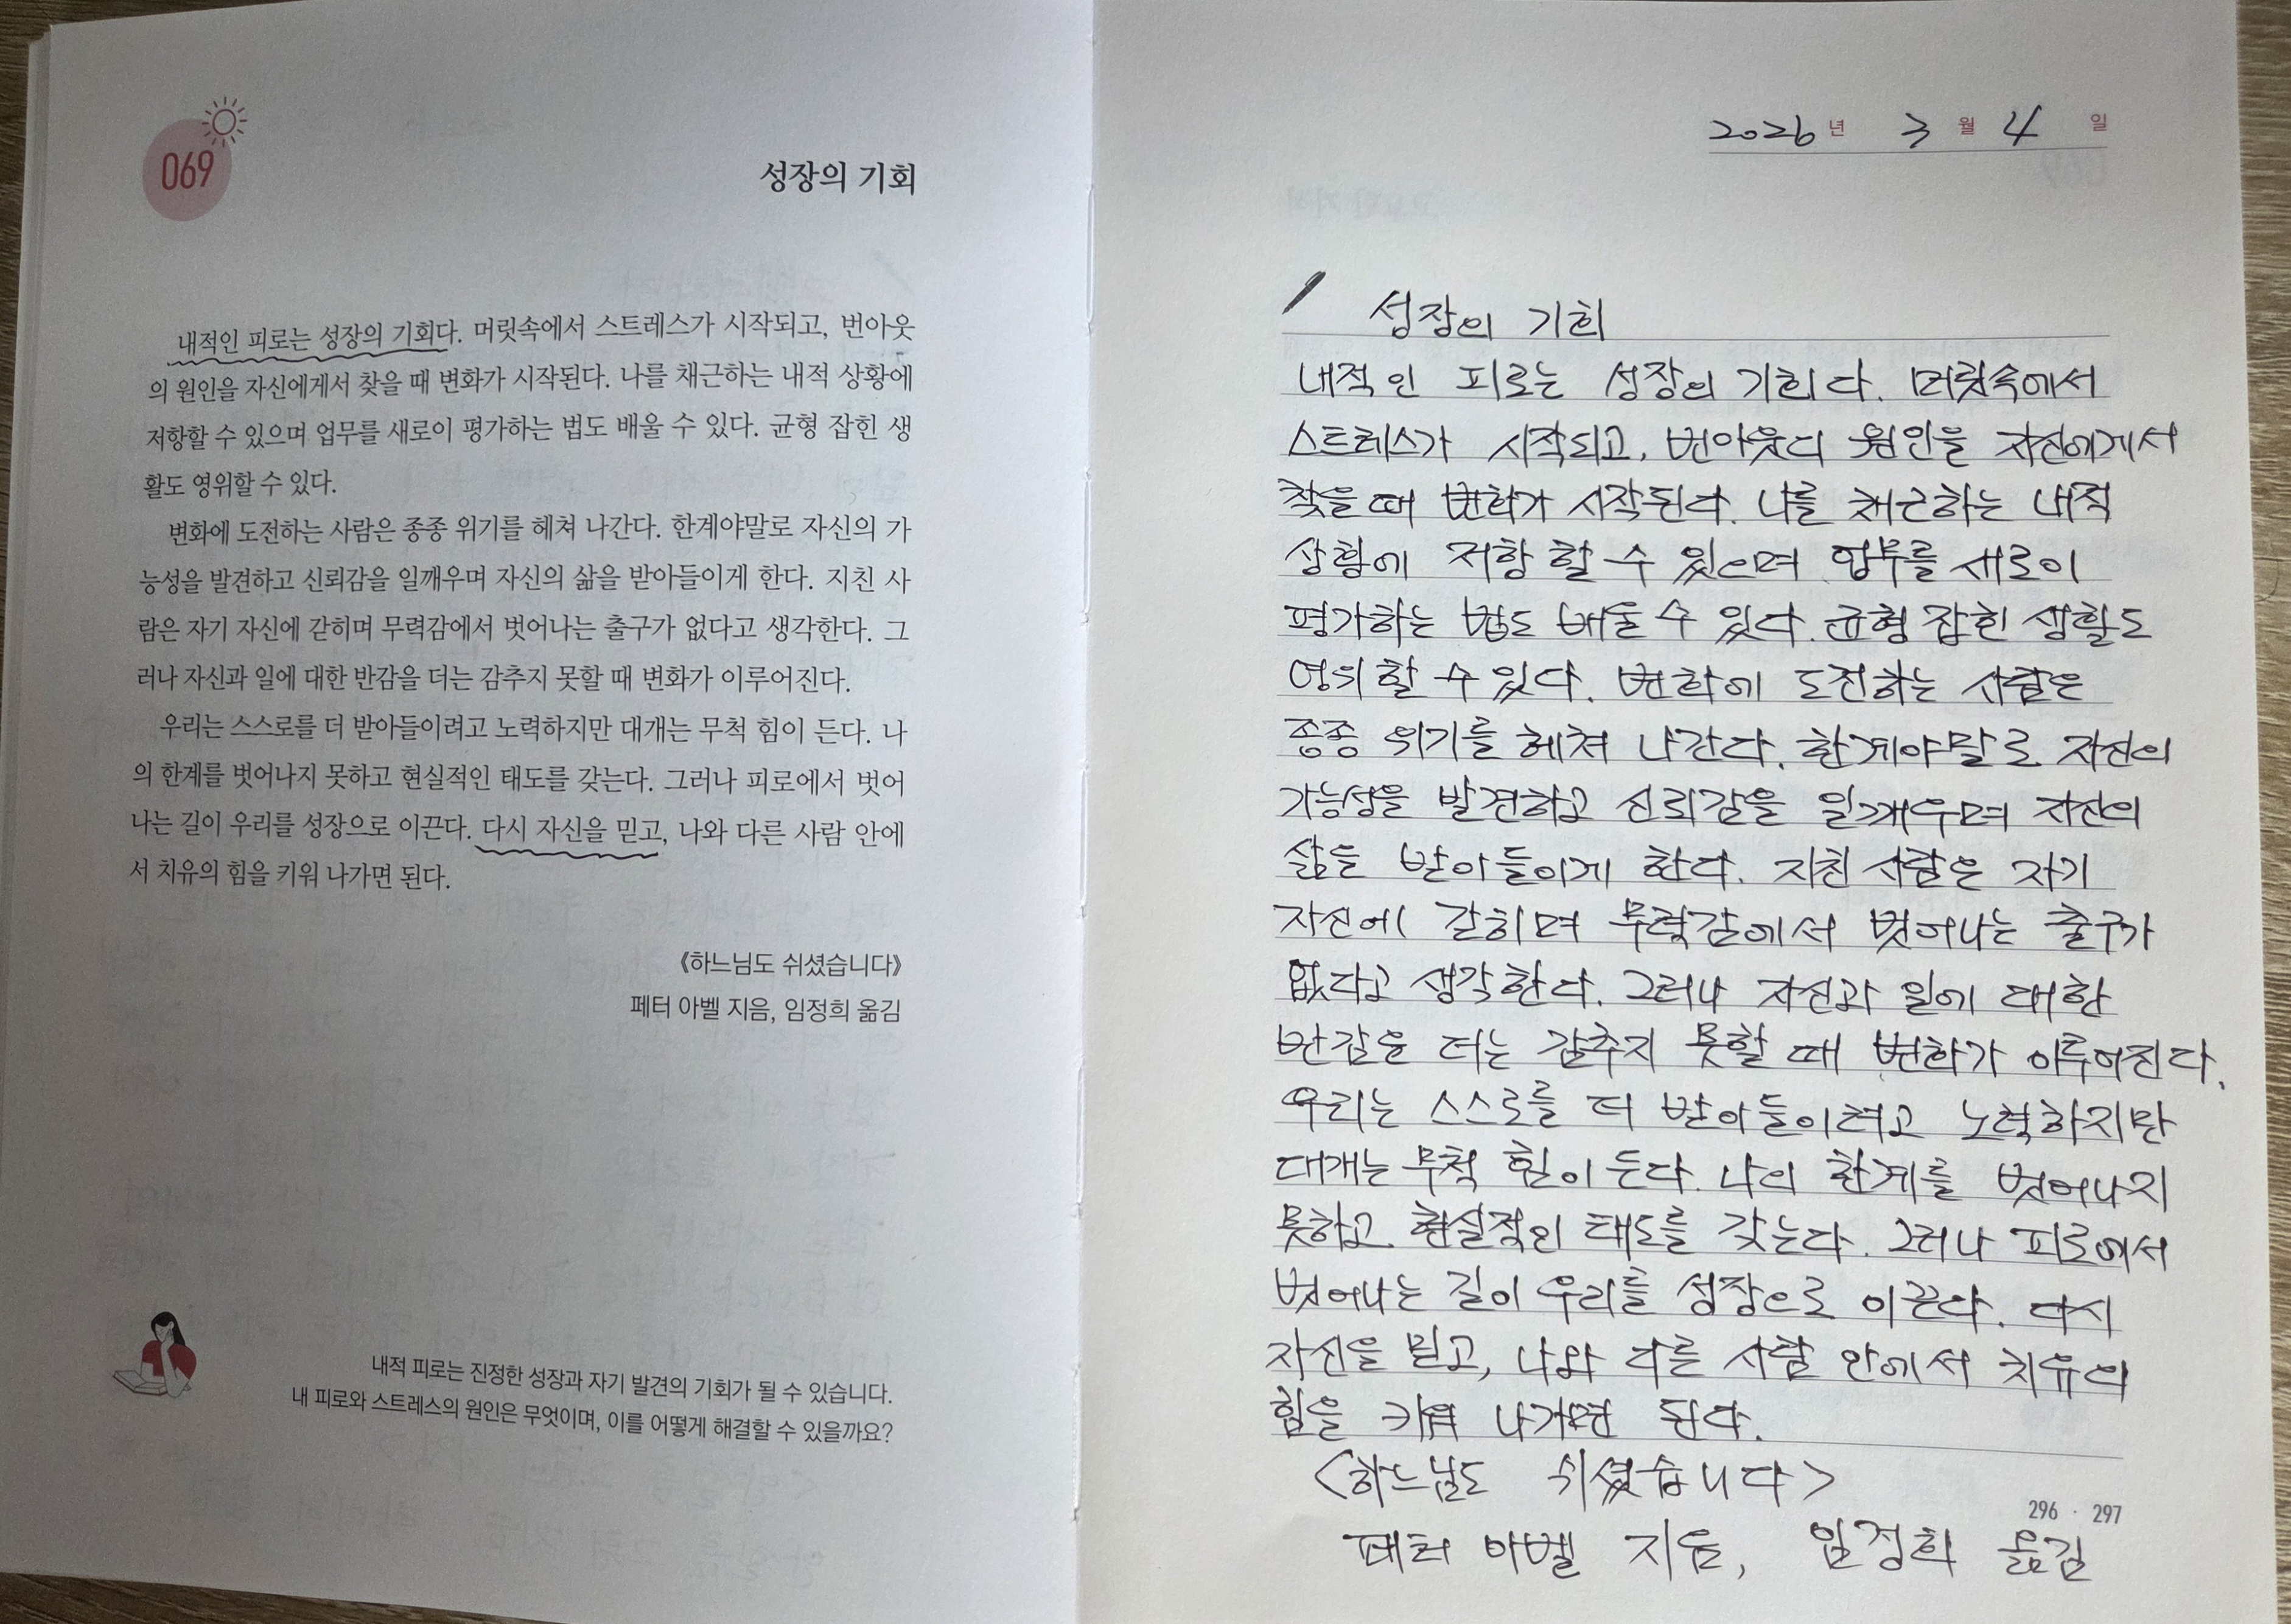 069
성장의 기회
내적인 피로는 성장의 기회다. 머릿속에서 스트레스가 시작되고, 번아웃
의 원인을 자신에게서 찾을 때 변화가 시작된다. 나를 채근하는 내적 상황에
저항할 수 있으며 업무를 새로이 평가하는 법도 배울 수 있다. 균형 잡힌 생
활도 영위할 수 있다.
변화에 도전하는 사람은 종종 위기를 헤쳐 나간다. 한계야말로 자신의 가
능성을 발견하고 신뢰감을 일깨우며 자신의 삶을 받아들이게 한다. 지친 사
람은 자기 자신에 갇히며 무력감에서 벗어나는 출구가 없다고 생각한다. 그
러나 자신과 일에 대한 반감을 더는 감추지 못할 때 변화가 이루어진다.
우리는 스스로를 더 받아들이려고 노력하지만 대개는 무척 힘이 든다. 나
의 한계를 벗어나지 못하고 현실적인 태도를 갖는다. 그러나 피로에서 벗어
나는 길이 우리를 성장으로 이끈다. 다시 자신을 믿고, 나와 다른 사람 안에
서 치유의 힘을 키워 나가면 된다.
《하느님도 쉬셨습니다》
페터 아벨 지음, 임정희 옮김
내적 피로는 진정한 성장과 자기 발견의 기회가 될 수 있습니다.
내 피로와 스트레스의 원인은 무엇이며, 이를 어떻게 해결할 수 있을까요?
2026 년 3 월 4 일
성장의 기회
내적인 피로는 성장의 기회다. 머릿속에서
스트레스가 시작되고, 번아웃의 원인을 자신에게서
찾을 때 변화가 시작된다. 나를 채근하는 내적
상황에 저항할 수 있으며 업무를 새로이
평가하는 법도 배울 수 있다. 균형 잡힌 생활도
영위할 수 있다. 변화에 도전하는 사람은
종종 위기를 헤쳐 나간다. 한계야말로 자신의
가능성을 발견하고 신뢰감을 일깨우며 자신의
삶을 받아들이게 한다. 지친 사람은 자기
자신에 갇히며 무력감에서 벗어나는 출구가
없다고 생각한다. 그러나 자신과 일에 대한
반감을 더는 감추지 못할 때 변화가 이루어진다.
우리는 스스로를 더 받아들이려고 노력하지만
대개는 무척 힘이 든다. 나의 한계를 벗어나지
못하고 현실적인 태도를 갖는다. 그러나 피로에서
벗어나는 길이 우리를 성장으로 이끈다. 다시
자신을 믿고, 나와 다른 사람 안에서 치유의
힘을 키워 나가면 된다.
<하느님도 쉬셨습니다>
296 · 297
페터 아벨 지음, 임정희 옮김